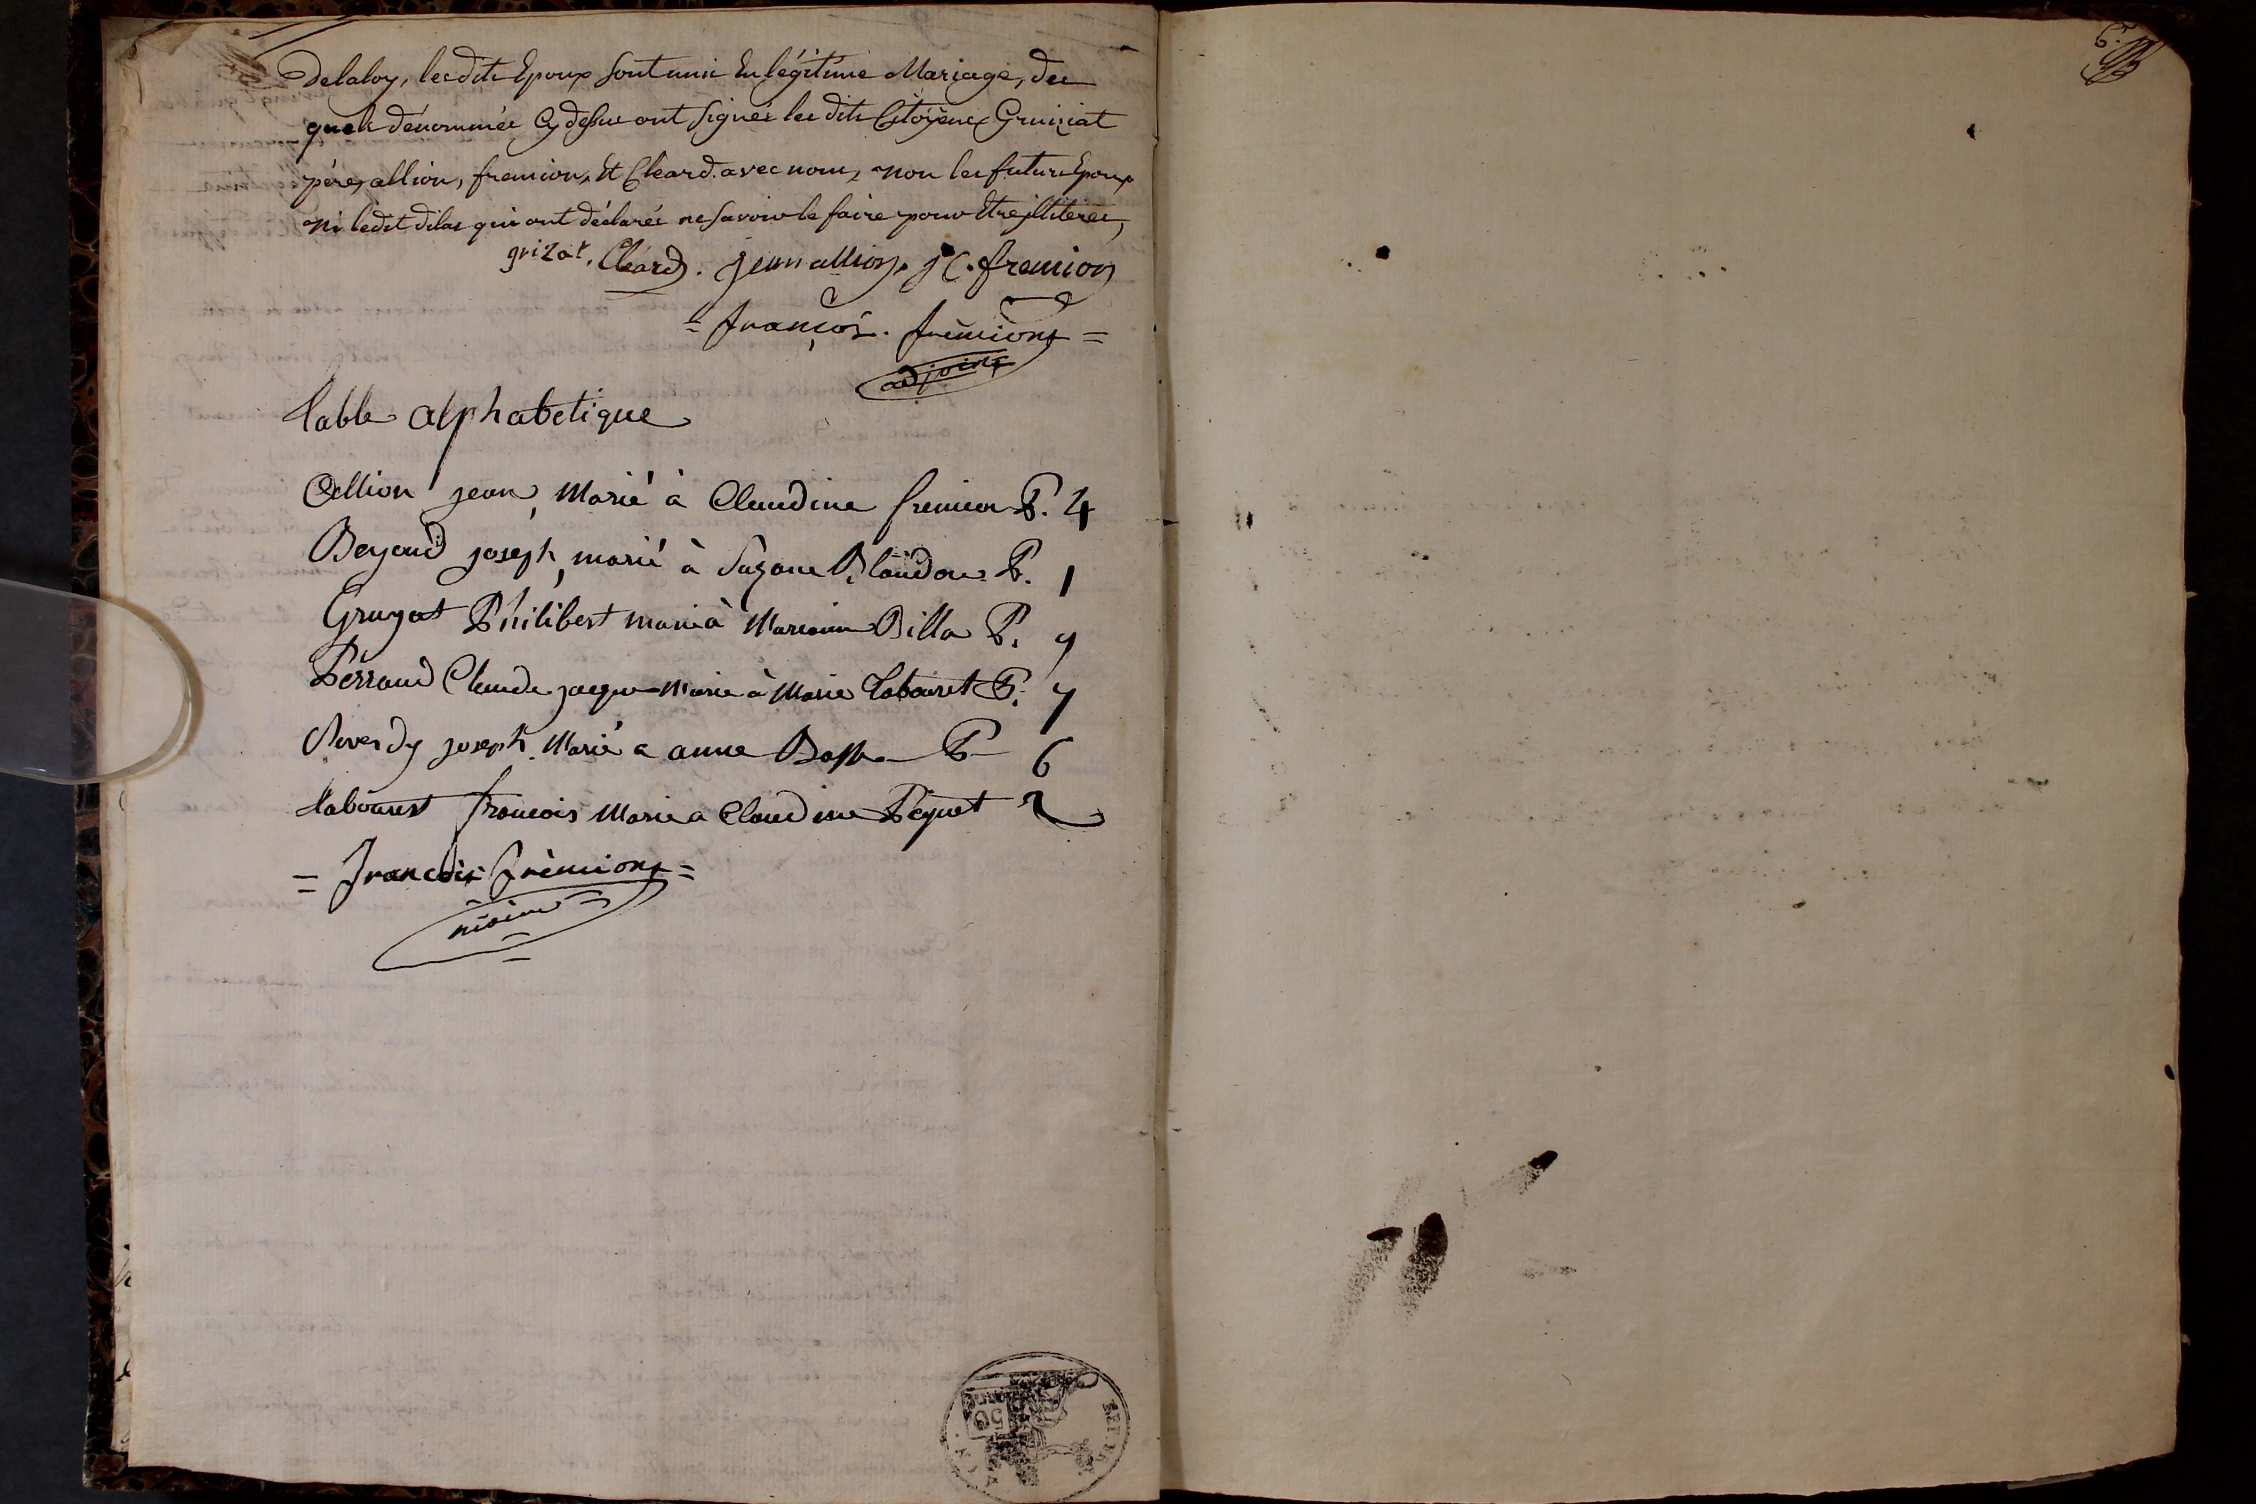 Delaloy, lesdits Epoux sont unis En légitime Mariage, des
quels dénommés Cy dessus ont signés lesdits Citoyens Gruiziat
père, allion, fremion, Et Cleard. avec nous, non les futurs Epoux
ni ledit dilas qui ont déclarés ne savoir le faire pour Etre illiterés,
grizat. Cleard. jean allion. j C. fremion
= françois. frèmiont =
adjoint
table alphabetique
Allion jean, Marié à Claudine fremion P. 4
Beyoud joseph, marié à Suzane Blandon P. 1
Gruyat Philibert marié à Marianne Billa P. 9
Perraud Claude jacque Marié à Marie Tabouret P. 7
Reverdy joseph. Marié a anne P 6
tabouret francois Marie a Claudine Péquet 2
= francois frèmiont =
maire
6.
REP. FRA
50